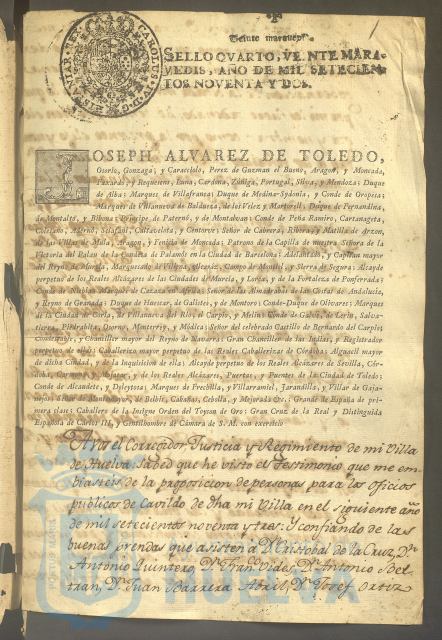 1
Veinte maravedis.
SELLO QVARTO, VEINTE MARA-
VEDIS, AÑO DE MIL SETECIEN-
TOS NOVENTA Y DOS.
JOSEPH ALVAREZ DE TOLEDO,
Osorio, Gonzaga, y Caracciolo, Perez de Guzman el Bueno, Aragon, y Moncada,
Faxardo, y Requesens, Luna, Cardona, Zuñiga, Portugal, Silva, y Mendoza: Duque
de Alba: Marques de Villafranca: Duque de Medina-Sydonia, y Conde de Oropesa:
Marques de Villanueva de Baldueza, de los Velez y Martorell: Duque de Fernandina,
de Montalto, y Bibona: Principe de Paternó, y de Montalvan: Conde de Peña Ramiro, Cartanageta,
Colesano, Adernó, Sclafani, Caltavelota, y Centorve: Señor de Cabrera, Ribera, y Matilla de Arzon,
de las Villas de Mula, Aragon, y Fenicia de Moncada: Patrono de la Capilla de nuestra Señora de la
Victoria del Palau de la Condesa de Palamós en la Ciudad de Barcelona: Adelantado, y Capitan mayor
del Reyno de Murcia, Marquesado de Villena, Alcaráz, Campo de Montiel, y Sierra de Segura: Alcayde
perpetuo de los Reales Alcazares de las Ciudades de Murcia, y Lorca, y de la Fortaleza de Ponferrada:
Conde de Niebla: Marques de Cazaza en Africa: Señor de las Almadrabas de las Costas de Andalucia,
y Reyno de Granada: Duque de Huescar, de Galisteo, y de Montoro: Conde-Duque de Olivares: Marques
de la Ciudad de Coria, de Villanueva del Rio, el Carpio, y Eliche: Conde de Galve, de Lerin, Salva-
tierra, Piedrahita, Osorno, Monterrey, y Módica: Señor del celebrado Castillo de Bernardo del Carpio;
Condestable, y Chanciller mayor del Reyno de Navarra: Gran Chanciller de las Indias, y Registrador
perpetuo de ellas: Caballerizo mayor perpetuo de las Reales Caballerizas de Córdoba: Alguacil mayor
de dicha Ciudad, y de la Inquisicion de ella: Alcayde perpetuo de los Reales Alcázares de Sevilla, Cór-
doba, Carmona, y Mojacar; y de los Reales Alcázares, Puertas, y Puentes de la Ciudad de Toledo:
Conde de Alcaudete, y Deleytosa; Marques de Frechilla, y Villarramiel, Jarandilla, y Villar de Gaja-
nejos: Señor de Montemayor, de Belbis, Cabañas, Cebolla, y Mejorada &c.: Grande de España de pri-
mera clase: Caballero de la Insigne Orden del Toyson de Oro: Gran Cruz de la Real y Distinguida
Española de Carlos III, y Gentilhombre de Cámara de S. M. con exercicio
A vos el Corregidor, Justicia y Regimiento de mi Villa
de Huelva: Sabed que he visto el testimonio que me em-
biasteis de la proposicion de personas para los oficios
publicos de Cavildo de dha mi Villa en el siguiente año
de mil setecientos noventa y tres: Y confiando de las
buenas prendas que asisten a Dn. Cristobal de la Cruz, Dn.
Antonio Quintero, Dn. Franco. Vides, Dn. Antonio Bel
tran, Dn. Juan Barrera Abril, Dn. Josef Ortiz